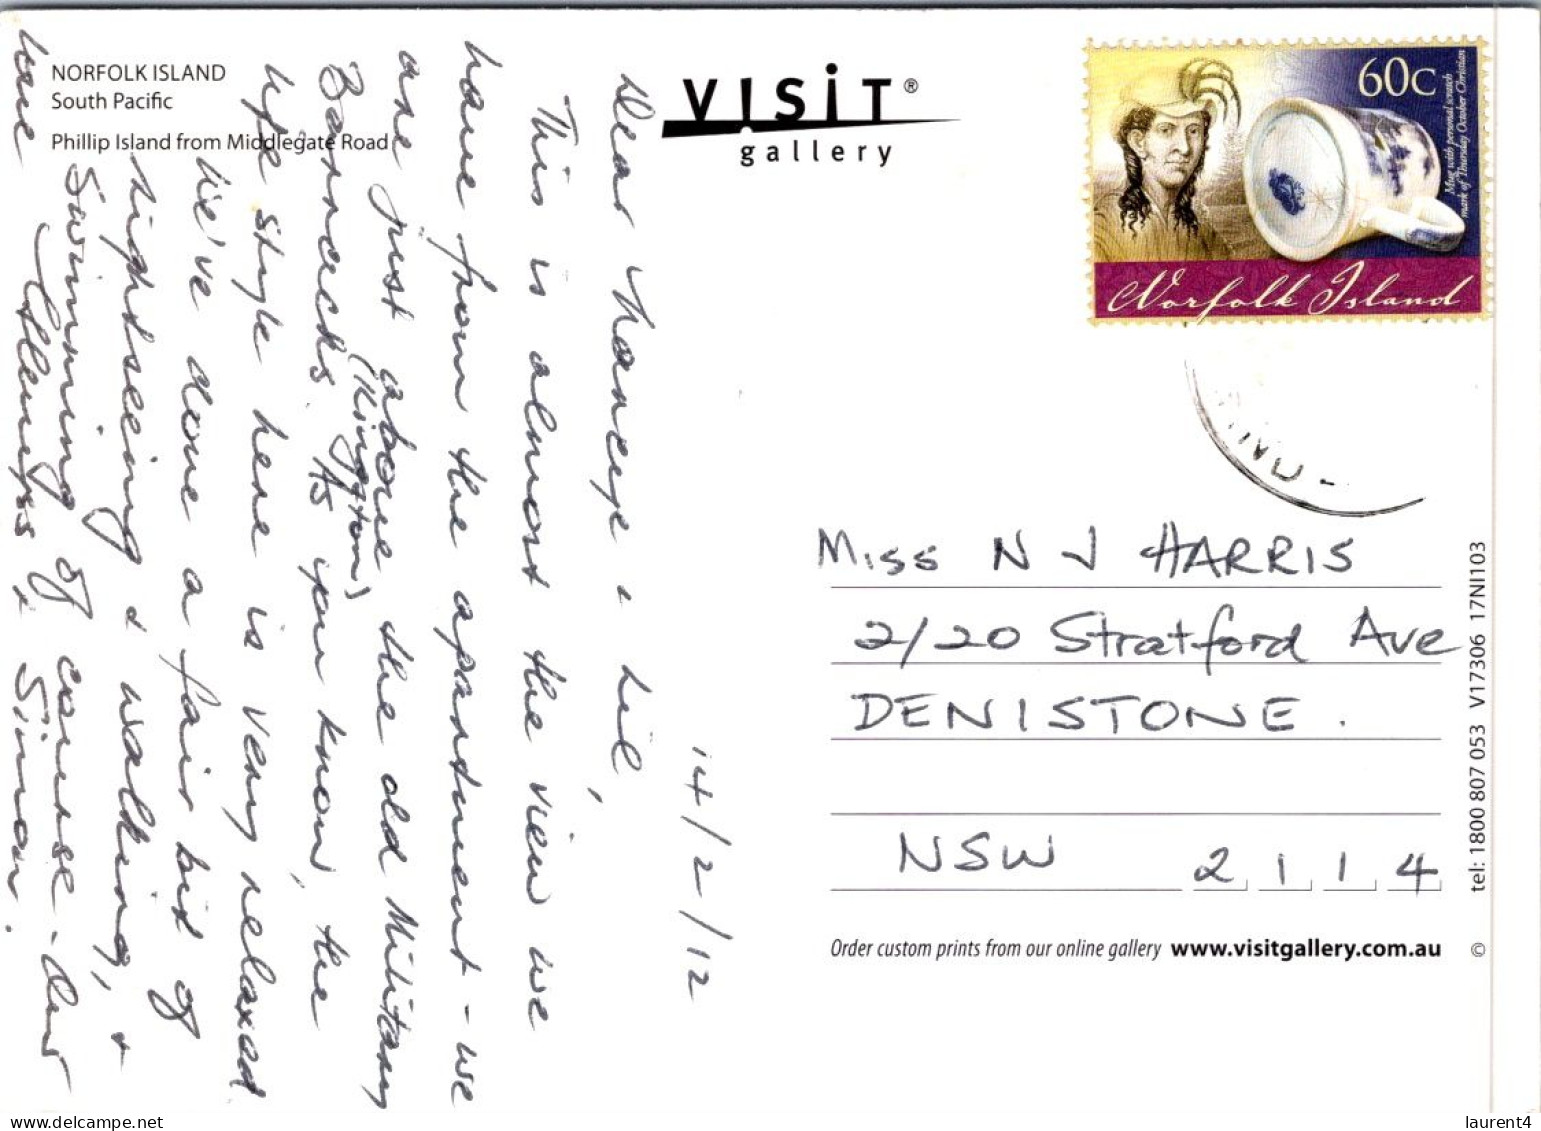 NORFOLK ISLAND
South Pacific
Phillip Island from Middlegate Road
VISIT®
gallery
60c
Mug with personal scratch
mark of Thursday October Christian
Norfolk Island
14/2/12
Dear Nancye & Lil,
This is almost the view we
have from the apartment - we
are just above the old Military
(Kingston)
Barracks. As you know, the
life style here is very relaxed
We've done a fair bit of
sightseeing & walking, &
Swimming of course. Our
love
& Simon.
Miss N J HARRIS
2/20 Stratford Ave
DENISTONE.
NSW 2114
Order custom prints from our online gallery www.visitgallery.com.au
tel: 1800 807 053 V17306 17NI103
©
www.delcampe.net
laurent4